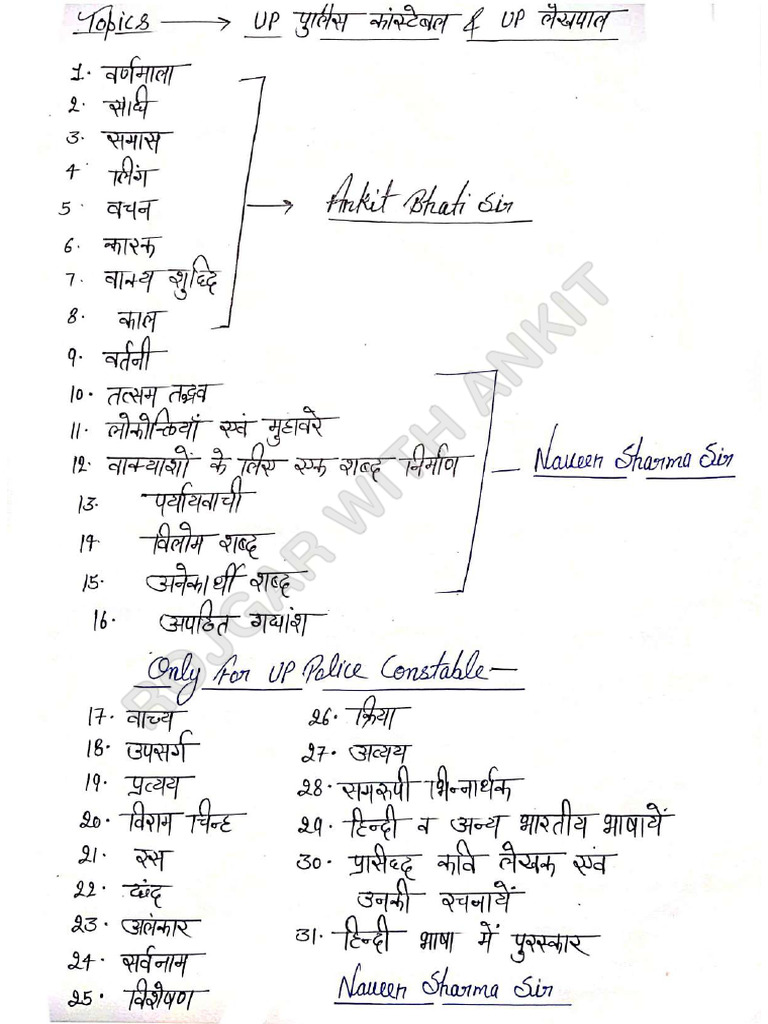 Topics → UP पुलिस कांस्टेबल & UP लेखपाल
1. वर्णमाला
2. संधि
3. समास
4 लिंग
5 वचन
6. कारक
7. वाक्य शुद्धि
8. काल
→ Ankit Bhati Sir
9. वर्तनी
10. तत्सम तद्भव
11. लोकोक्तियाँ एवं मुहावरे
12. वाक्याशों के लिए एक शब्द निर्माण
13. पर्यायवाची
14 विलोम शब्द
15. अनेकार्थी शब्द
16. अपठित गद्यांश
Naveen Sharma Sir
Only For UP Police Constable —
17. वाच्य
18. उपसर्ग
19. प्रत्यय
20. विराम चिन्ह
21. रस
22. छंद
23. अलंकार
24. सर्वनाम
25. विशेषण
26. क्रिया
27. अव्यय
28. समरूपी भिन्नार्थक
29. हिन्दी व अन्य भारतीय भाषायें
30. प्रसिध्द कवि लेखक एवं
उनकी रचनायें
31. हिन्दी भाषा में पुरस्कार
Naveen Sharma Sir
ROJGAR WITH ANKIT